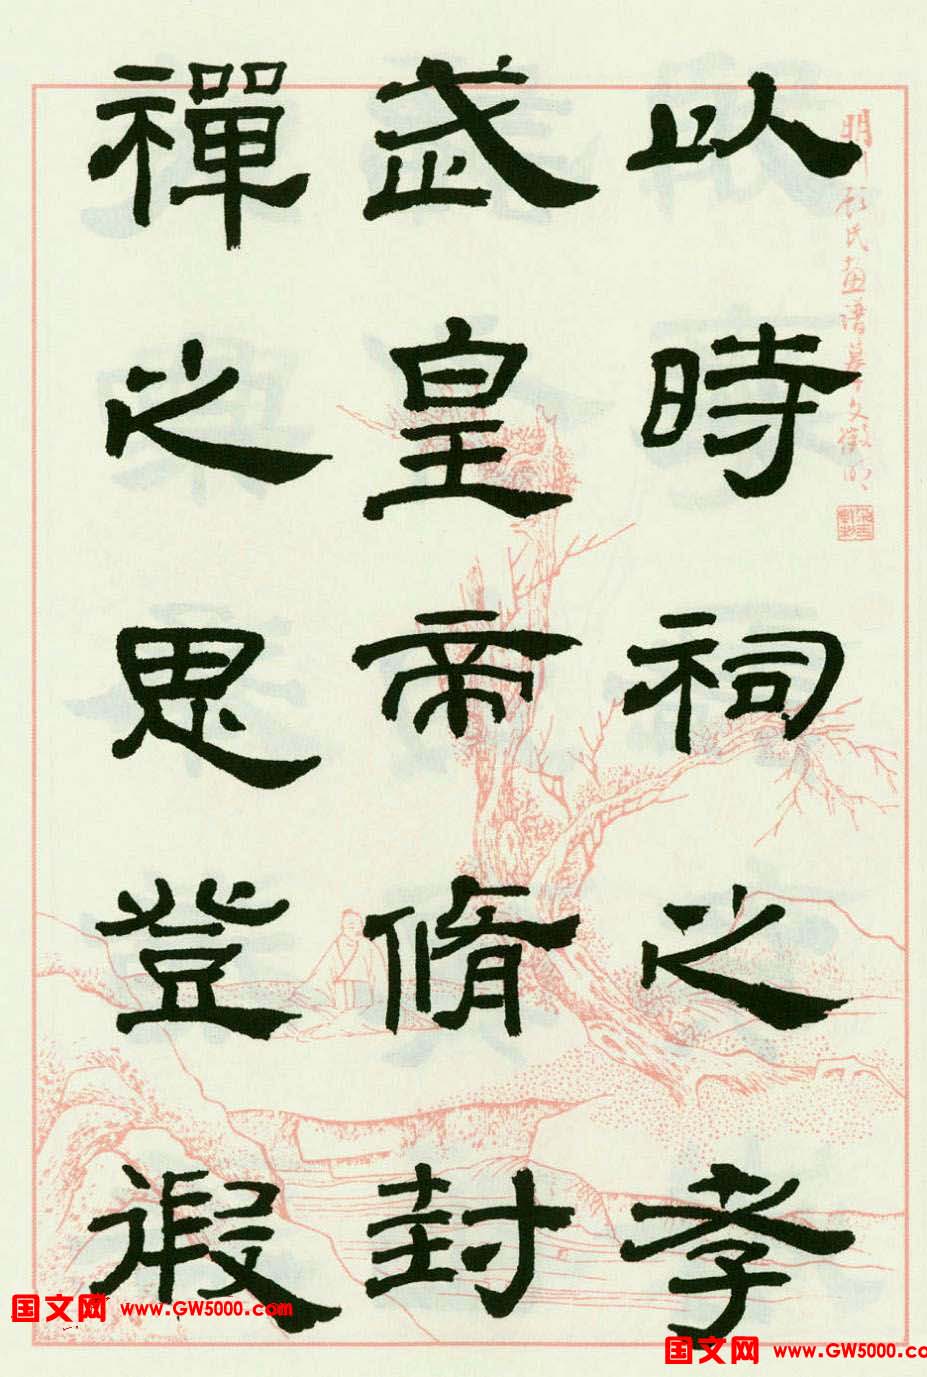 以時祠之孝
武皇帝脩封
禪之思登徦
明刊顧氏畫譜摹文徵明
国文网 www.GW5000.com
国文网 www.GW5000.co